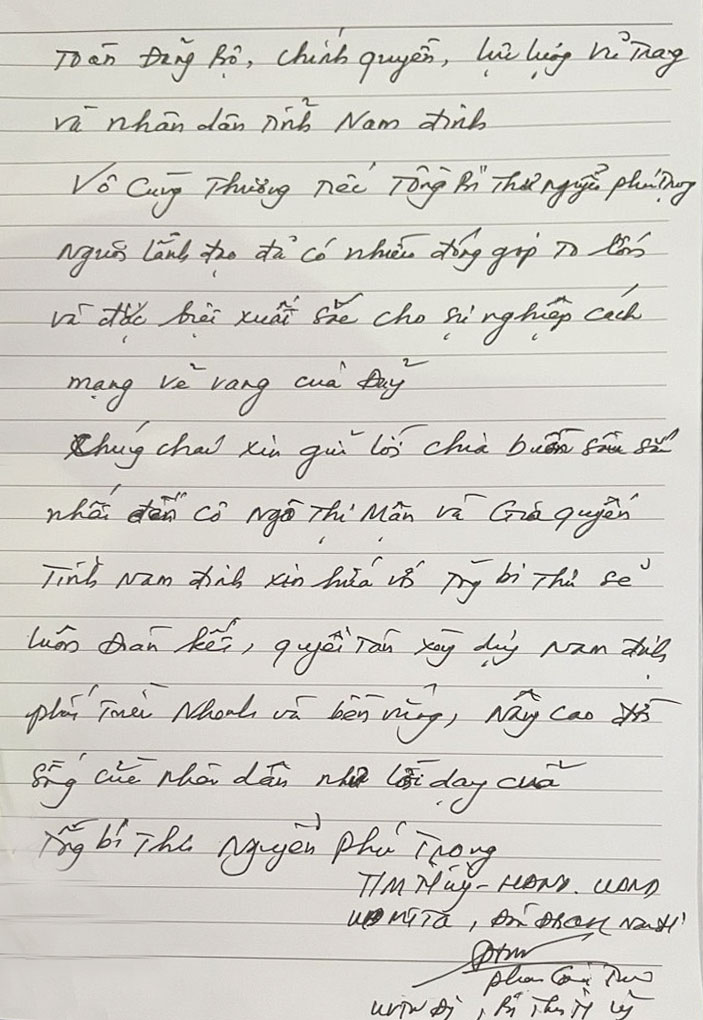 Toàn Đảng bộ, chính quyền, lực lượng vũ trang
và nhân dân tỉnh Nam Định
Vô cùng thương tiếc Tổng Bí Thư Nguyễn Phú Trọng
người lãnh đạo đã có nhiều đóng góp to lớn
và đặc biệt xuất sắc cho sự nghiệp cách
mạng vẻ vang của Đảng
Chúng cháu xin gửi lời chia buồn sâu sắc
nhất đến cô Ngô Thị Mận và Gia quyến
Tỉnh Nam Định xin hứa với Tổng bí Thư sẽ
luôn đoàn kết, quyết tâm xây dựng Nam Định
phát triển nhanh và bền vững, nâng cao đời
sống của nhân dân như lời dạy của
Tổng bí Thư Nguyễn Phú Trọng
T/M Tỉnh ủy - HĐND. UBND
UBMTTQ, Đoàn ĐBQH Nam Định
UVTW Đ, Bí Thư Tỉnh ủy